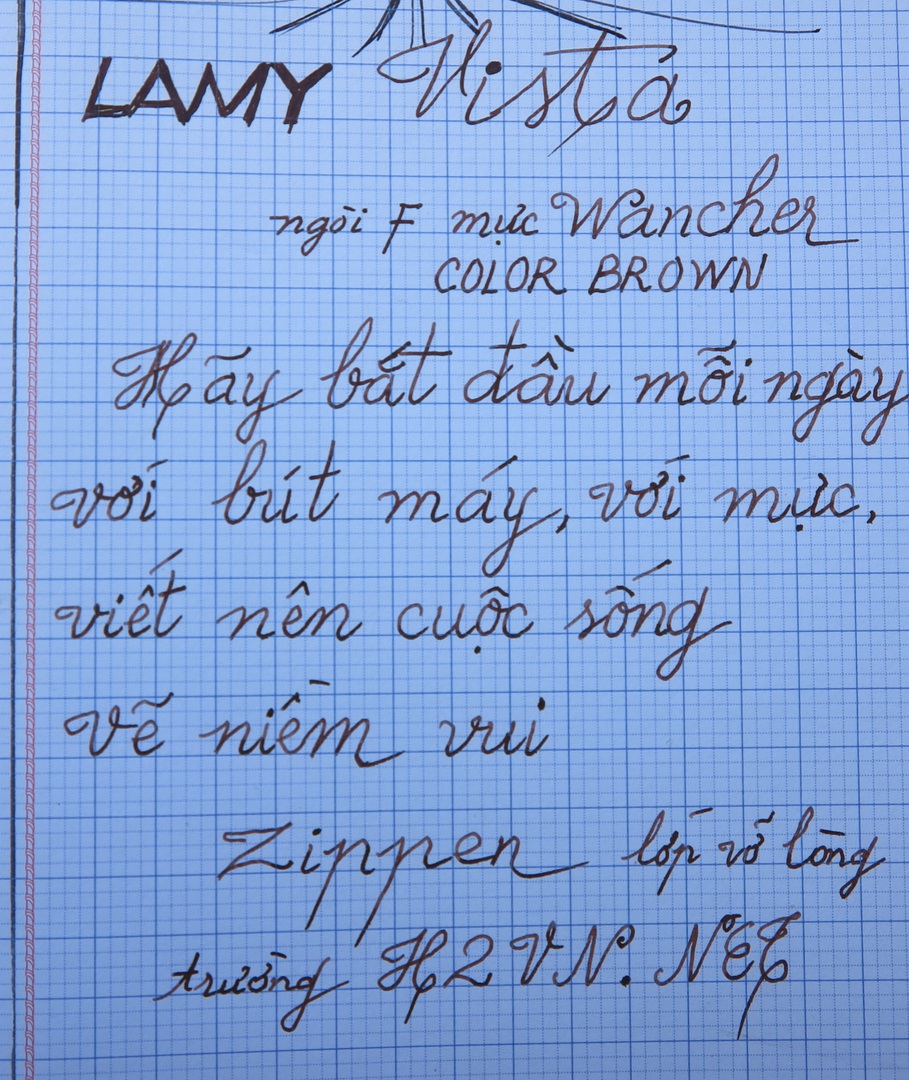 LAMY Vista
ngòi F mực Wancher
COLOR BROWN
Hãy bắt đầu mỗi ngày
với bút máy, với mực,
viết nên cuộc sống
vẽ niềm vui
Zippen lớp vỡ lòng
trường H2VN.NET